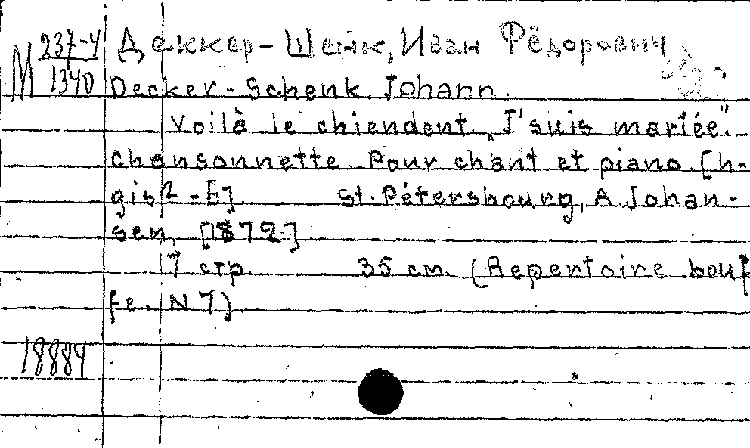 М 237-4/1340 Деккер-Шенк, Иван Фёдорович
Decker-Schenk Johann.
Voilà le chiendent „J'suis mariée".
Chansonnette. Pour chant et piano. [h-
gis² - E] St. Pétersbourg, A. Johan-
sen, [1872]
7 стр. 35 cm. (Repertoire bouf
fe. N 7)
18884